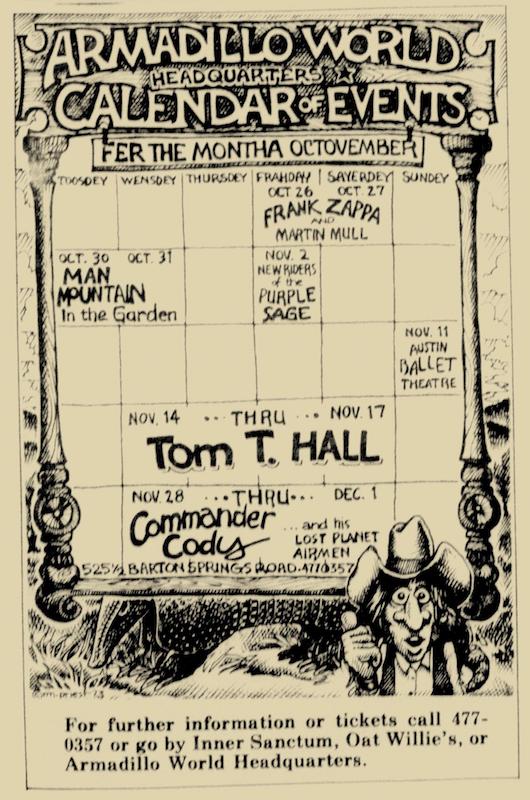 ARMADILLO WORLD
HEADQUARTERS
CALENDAR OF EVENTS
FER THE MONTHA OCTOVEMBER
TOOSDEY WENSDEY THURSDEY FRAHDAY SAYERDEY SUNDEY
OCT 26 OCT. 27
FRANK ZAPPA
AND
MARTIN MULL
OCT. 30 OCT. 31
MAN
MOUNTAIN
In the Garden
NOV. 2
NEW RIDERS
of the
PURPLE
SAGE
NOV. 11
AUSTIN
BALLET
THEATRE
NOV. 14 ... THRU ... NOV. 17
Tom T. HALL
NOV. 28 ...THRU... DEC. 1
Commander
Cody
...and his
LOST PLANET
AIRMEN
525½ BARTON SPRINGS ROAD·4770357
For further information or tickets call 477-
0357 or go by Inner Sanctum, Oat Willie's, or
Armadillo World Headquarters.